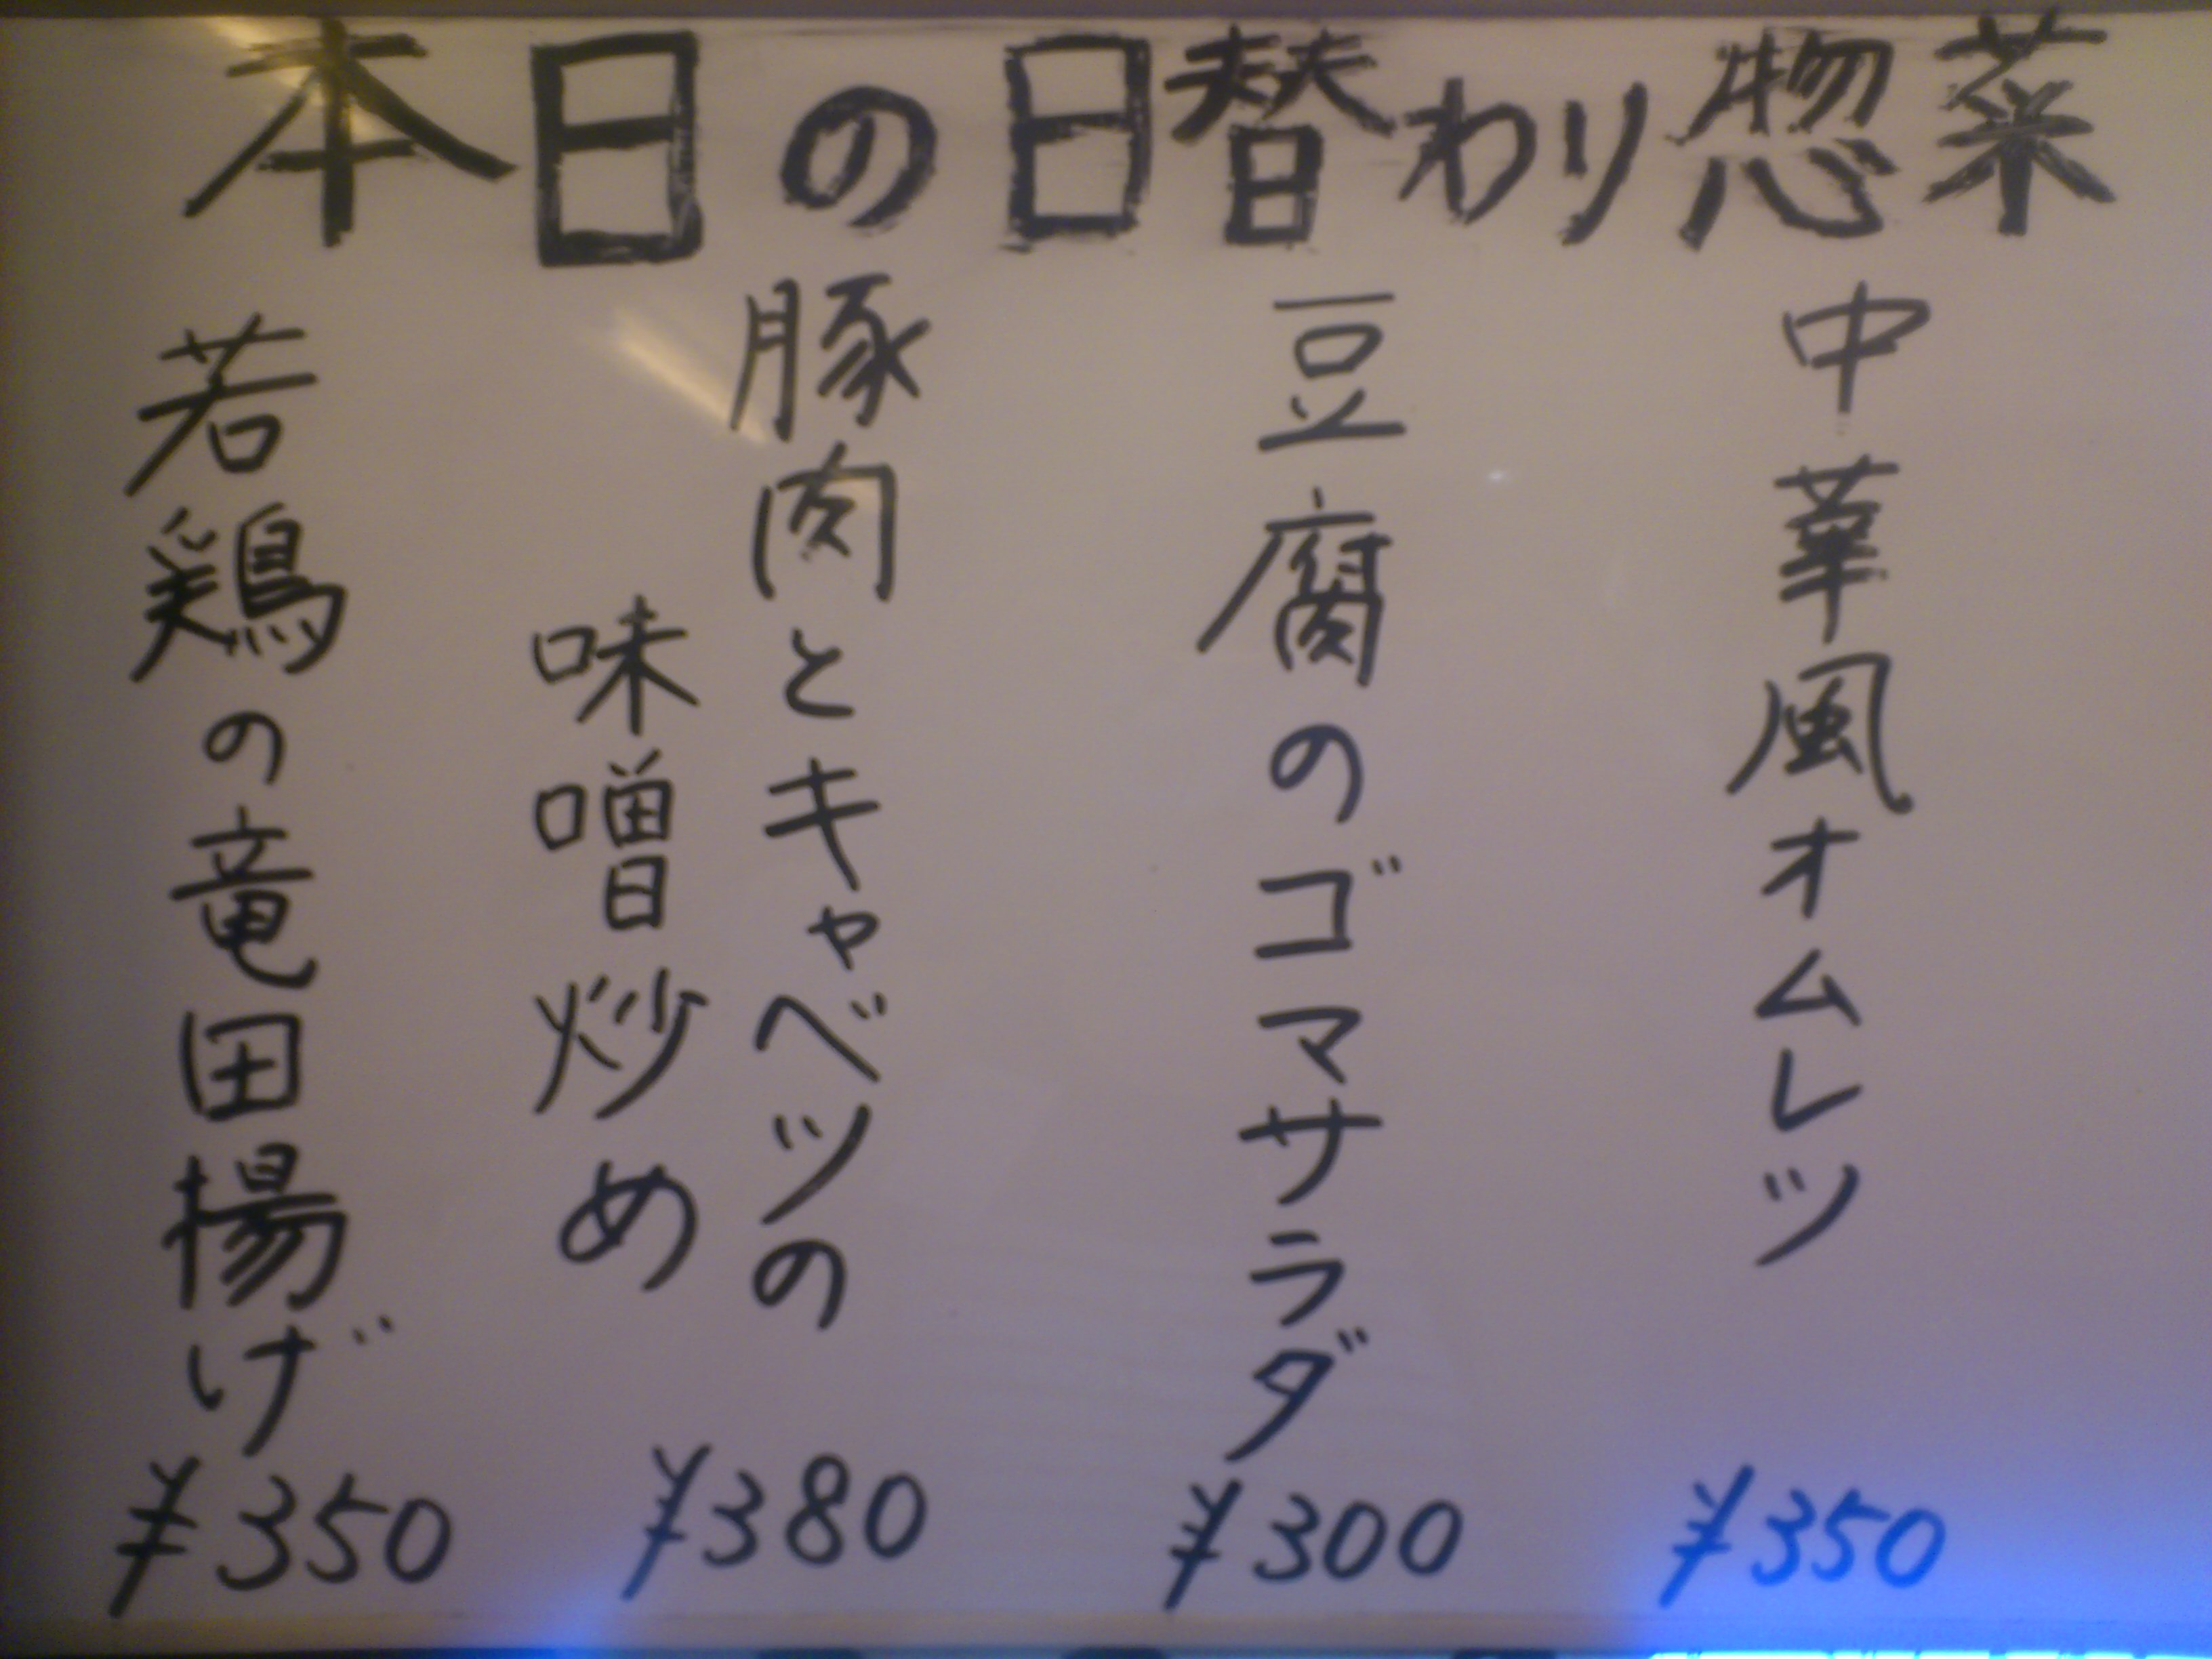 本日の日替わり惣菜
中華風オムレツ
¥350
豆腐のゴマサラダ
¥300
豚肉とキャベツの
味噌炒め
¥380
若鶏の竜田揚げ
¥350